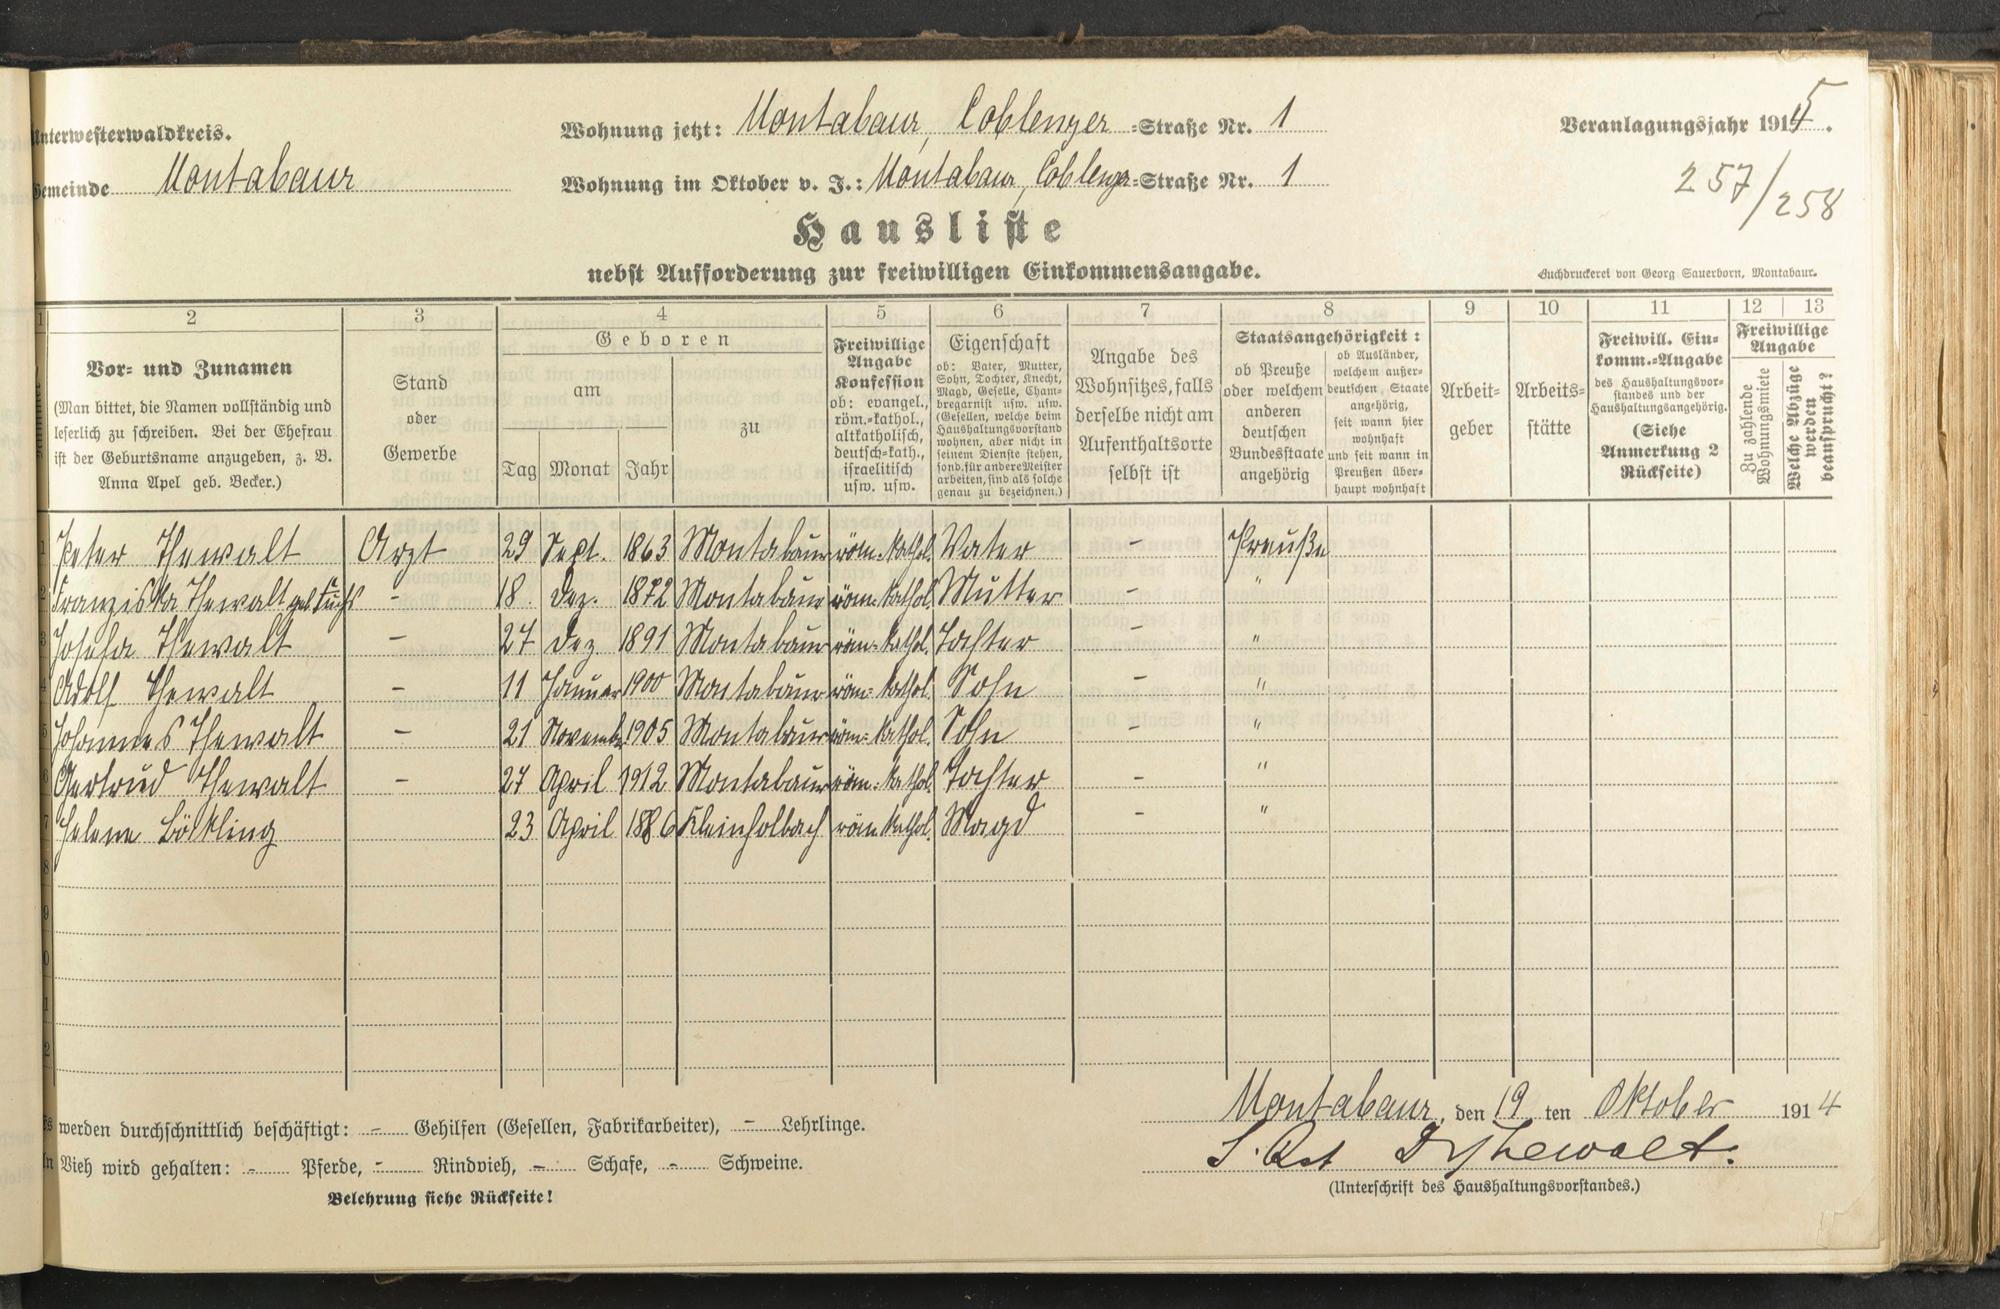 Unterwesterwaldkreis.
Gemeinde Montabaur
Wohnung jetzt: Montabaur, Coblenzer -Straße Nr. 1
Wohnung im Oktober v. J.: Montabaur, Coblenzer-Straße Nr. 1
Veranlagungsjahr 1915.
257/258
Hausliste
nebst Aufforderung zur freiwilligen Einkommensangabe.
Buchdruckerei von Georg Sauerborn, Montabaur.
1 2 3 4 5 6 7 8 9 10 11 12 13
Vor- und Zunamen
(Man bittet, die Namen vollständig und
leserlich zu schreiben. Bei der Ehefrau
ist der Geburtsname anzugeben, z. B.
Anna Apel geb. Becker.)
Stand
oder
Gewerbe
Geboren
am
Tag Monat Jahr
zu
Freiwillige
Angabe
Konfession
ob: evangel.,
röm.-kathol.,
altkatholisch,
deutsch-kath.,
israelitisch
usw. usw.
Eigenschaft
ob: Vater, Mutter,
Sohn, Tochter, Knecht,
Magd, Geselle, Cham-
bregarnist usw. usw.
(Gesellen, welche beim
Haushaltungsvorstand
wohnen, aber nicht in
seinem Dienste stehen,
sond. für andere Meister
arbeiten, sind als solche
genau zu bezeichnen.)
Angabe des
Wohnsitzes, falls
derselbe nicht am
Aufenthaltsorte
selbst ist
Staatsangehörigkeit:
ob Preuße
oder welchem
anderen
deutschen
Bundesstaate
angehörig
ob Ausländer,
welchem außer-
deutschen Staate
angehörig,
seit wann hier
wohnhaft
und seit wann in
Preußen über-
haupt wohnhaft
Arbeit-
geber
Arbeits-
stätte
Freiwill. Ein-
komm.-Angabe
des Haushaltungsvor-
standes und der
Haushaltungsangehörig.
(Siehe
Anmerkung 2
Rückseite)
Freiwillige
Angabe
Zu zahlende
Wohnungsmiete
Welche Abzüge
werden
beansprucht?
1 Peter Thewalt Arzt 29 Sept. 1863 Montabaur röm.-kathol. Vater - Preuße
2 Franziska Thewalt geb. Fuchs - 18. Dez. 1872 Montabaur röm.-kathol. Mutter - "
3 Josefa Thewalt - 27 Dez 1891 Montabaur röm.-kathol. Tochter - "
4 Adolf Thewalt - 11 Januar 1900 Montabaur röm.-kathol. Sohn - "
5 Johannes Thewalt - 21 November 1905 Montabaur röm.-kathol. Sohn - "
6 Gertrud Thewalt - 27 April 1912 Montabaur röm.-kathol. Tochter - "
7 Helene Böckling 23 April 1886 Kleinholbach röm. kathol. Magd - "
8
9
0
1
2
Es werden durchschnittlich beschäftigt: - Gehilfen (Gesellen, Fabrikarbeiter), - Lehrlinge.
An Vieh wird gehalten: - Pferde, - Rindvieh, - Schafe, - Schweine.
Belehrung siehe Rückseite!
Montabaur, den 19 ten Oktober 1914
Dr Thewalt.
(Unterschrift des Haushaltungsvorstandes.)